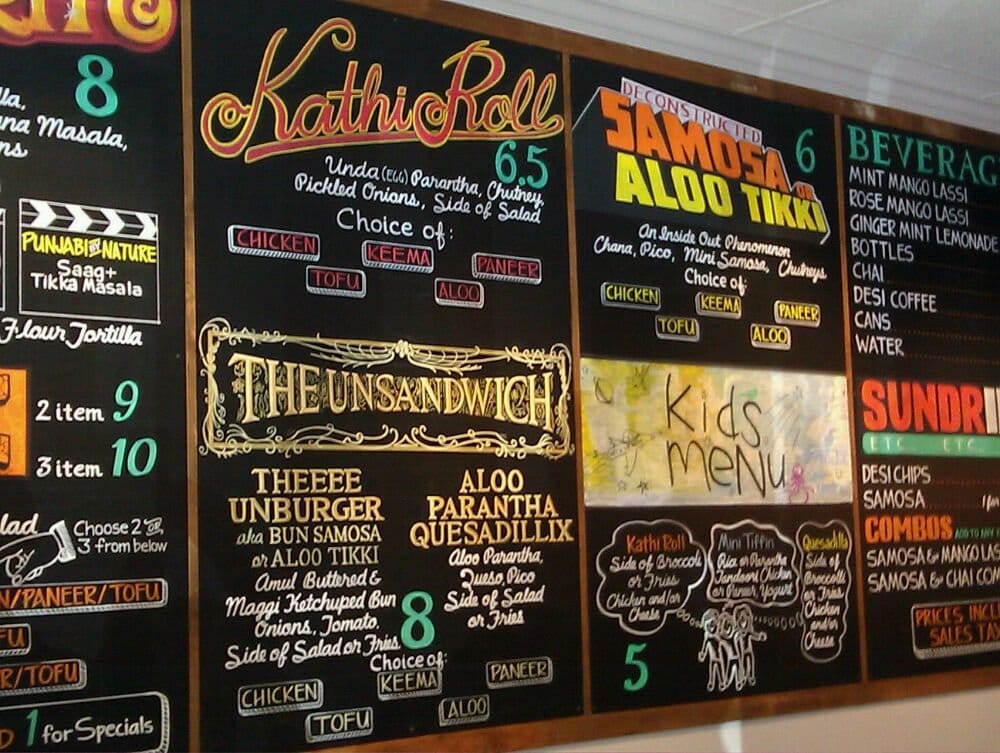 8
na Masala,
PUNJABI BY NATURE
Saag+
Tikka Masala
Flour Tortilla
2 item 9
3 item 10
Choose 2 or
3 from below
/PANEER/TOFU
/TOFU
1 for Specials
Kathi Roll
6.5
Unda (EGG) Parantha, Chutney,
Pickled Onions, Side of Salad
Choice of:
CHICKEN
KEEMA
PANEER
TOFU
ALOO
THE UNSANDWICH
THEEEE
UNBURGER
aka BUN SAMOSA
or ALOO TIKKI
Amul Buttered &
Maggi Ketchuped Bun
Onions, Tomato.
Side of Salad or Fries
ALOO
PARANTHA
QUESADILLIX
Aloo Parantha,
Queso, Pico
Side of Salad
or Fries
8
Choice of:
CHICKEN
KEEMA
PANEER
TOFU
ALOO
DECONSTRUCTED
SAMOSA OR
ALOO TIKKI
6
An Inside Out Phenomenon
Chana, Pico, Mini Samosa, Chutneys
Choice of:
CHICKEN
KEEMA
PANEER
TOFU
ALOO
Kids
MeNu
Kathi Roll
Side of Broccoli
or Fries
Chicken and/or
Cheese
Mini Tiffin
Rice or Parantha
Tandoori Chicken
or Paneer, Yogurt
Quesadilla
Side of
Broccoli
or Fries
Chicken
and/or
Cheese
5
BEVERAG
MINT MANGO LASSI
ROSE MANGO LASSI
GINGER MINT LEMONADE
BOTTLES
CHAI
DESI COFFEE
CANS
WATER
SUNDRI
ETC. ETC.
DESI CHIPS
SAMOSA
COMBOS ADD TO ANY
SAMOSA & MANGO LAS
SAMOSA & CHAI COM
PRICES INCL
SALES TA